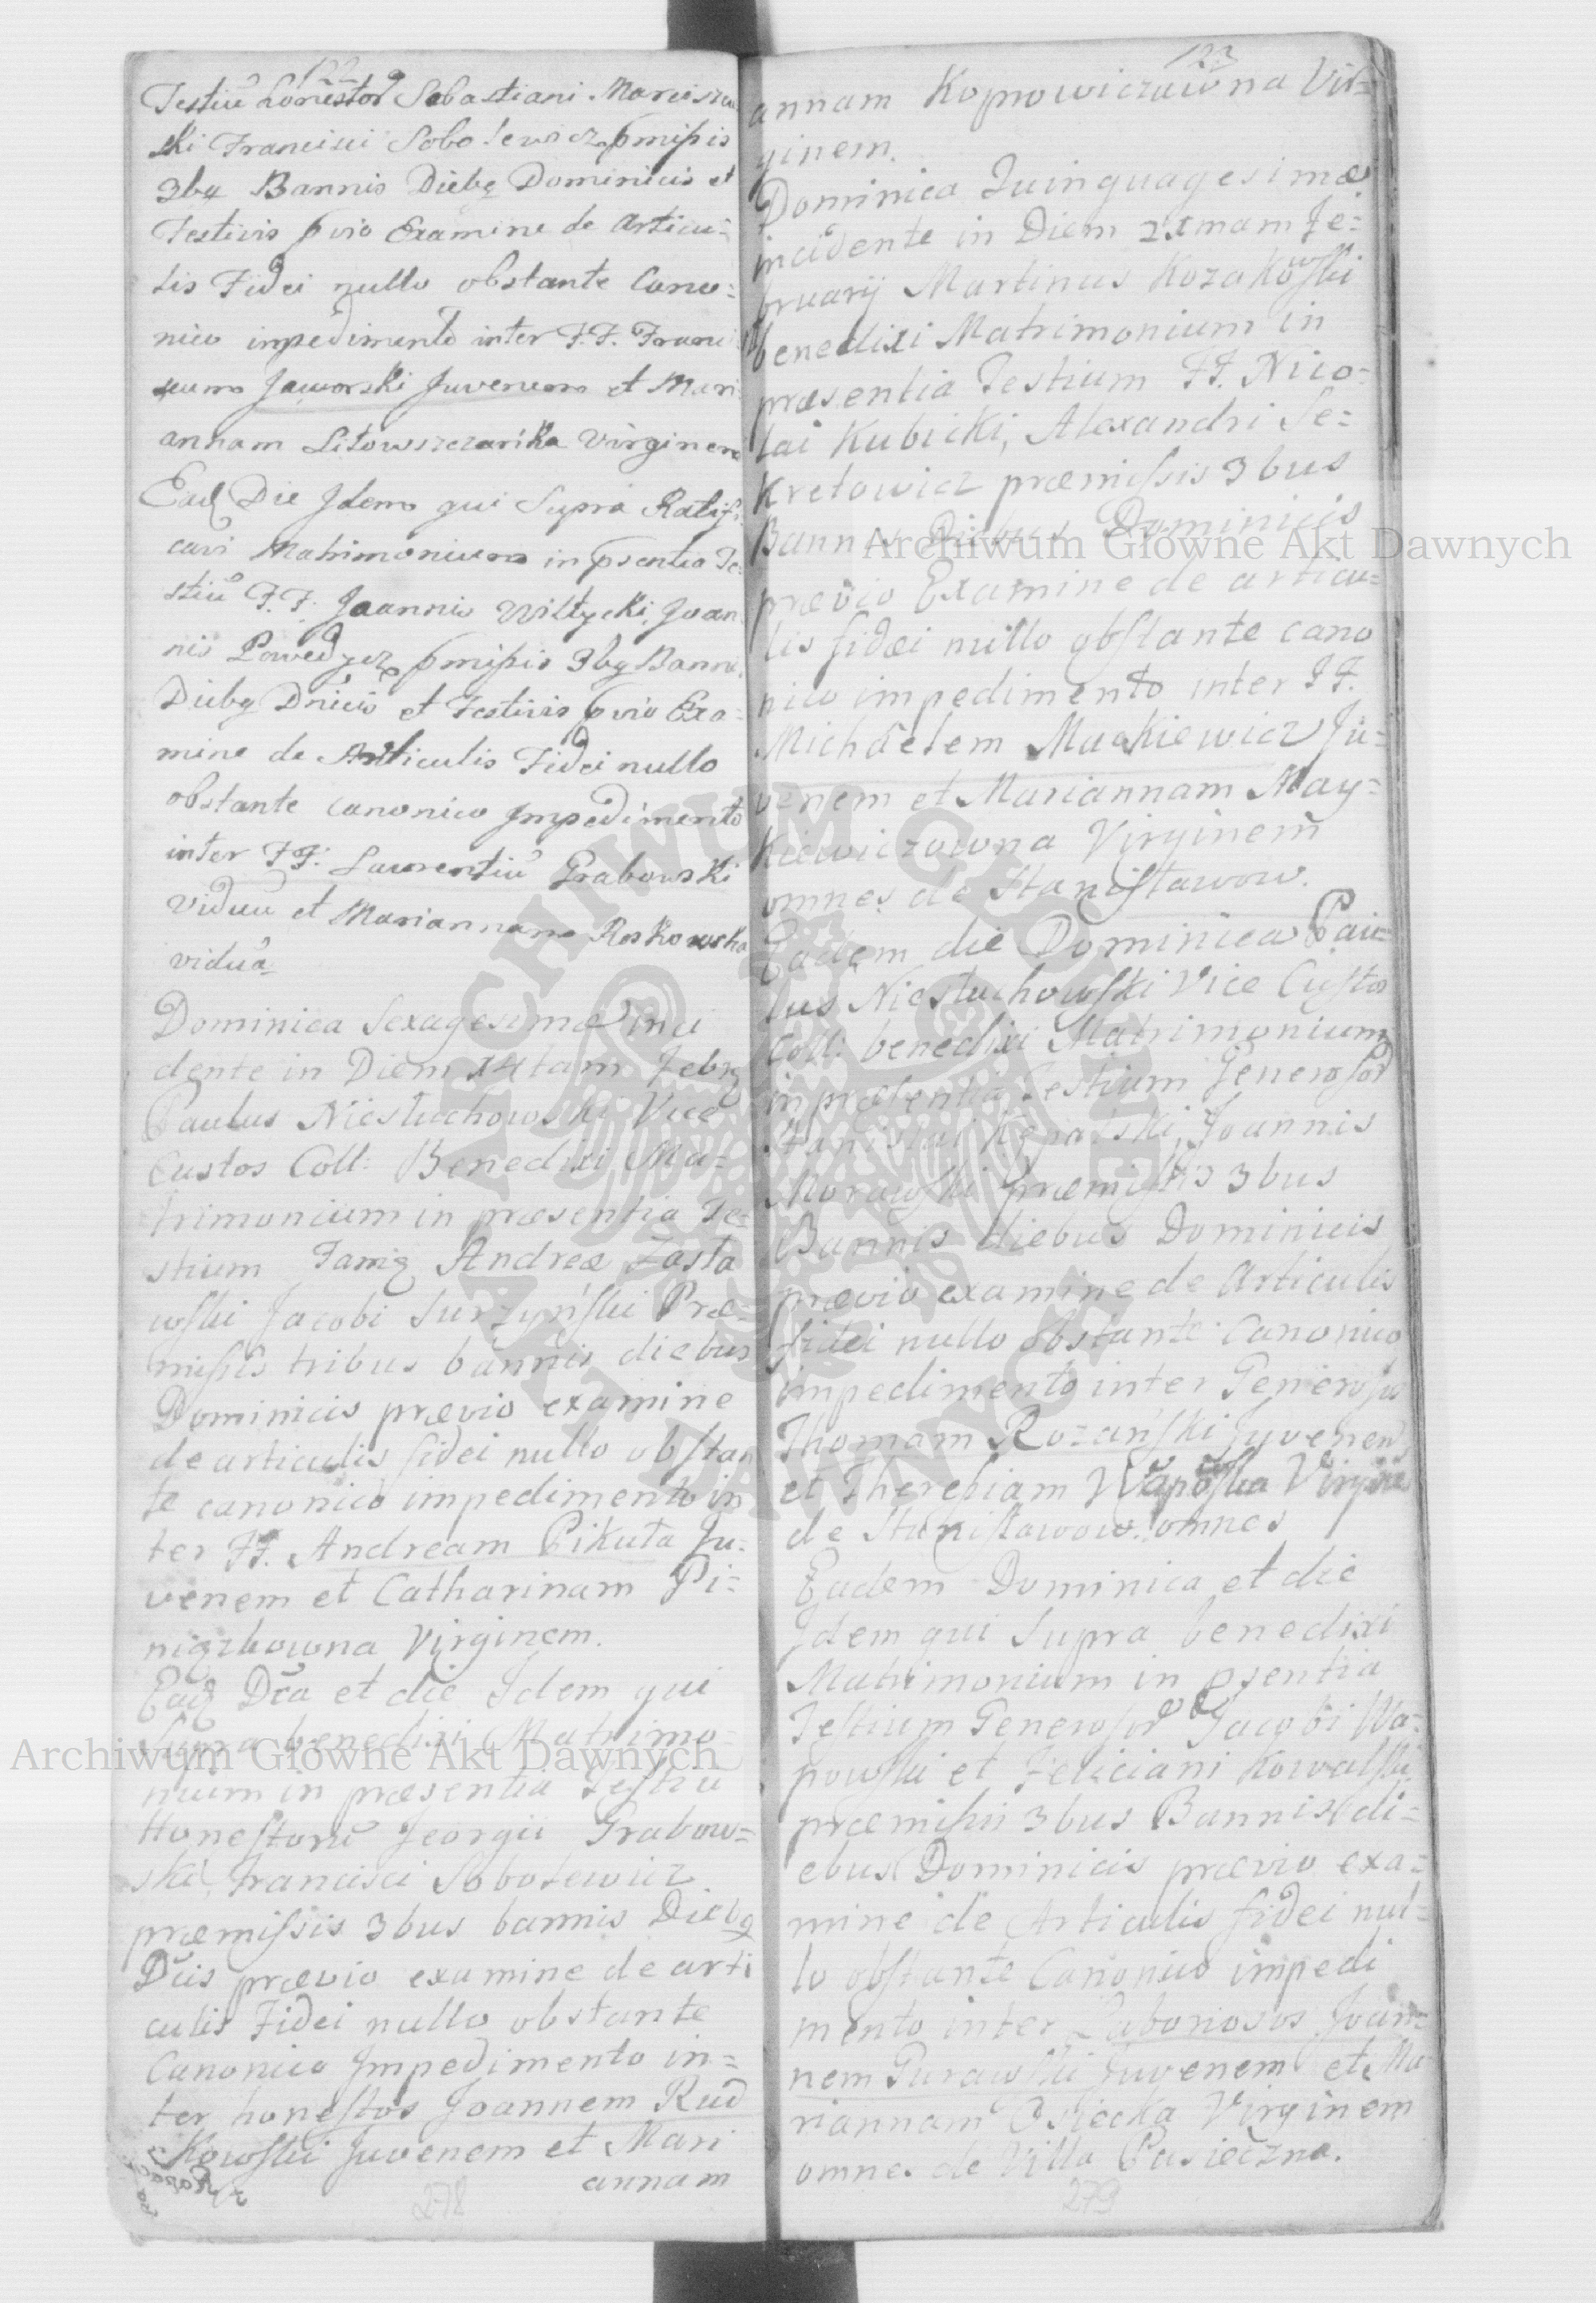 122
Testiũ Honestor̃ Sebastiani Marcisze
ski Francisci Sobolewicz pmissis
3bq Bannis Diebq Dominicis et
Festivis pvio Examine de Articu=
lis Fidei nullo obstante Cano=
nico impedimento inter F.F. Franci
scum Jaworski Juvenem et Mari
annam Litowszczanka Virginem
Eaď Die Idem qui Supra Ratifi
cavi Matrimonium in psentia Te=
stiũ F.F. Joannis Wiltycki, Joan
nis Powedzez pmissis 3bq Bannis
Diebq Dnicis et Festivis pvio Exa=
mine de Articulis Fidei nullo
obstante canonico Impedimento
inter F.F. Laurentiũ Grabowski
Viduũ et Mariannam Roskowska
viduã
Dominica Sexagesimæ inci
dente in Diem 14tam Febrq
Paulus Niestuchowski Vice
Custos Coll: Benedixi Ma=
trimonium in præsentia Te=
stium Famq Andreæ Zasta
wski Jacobi Surzyński Præ=
missis tribus bannis diebus
Dominicis prævio examine
de articulis fidei nullo obstan
te canonico impedimento in
ter FF. Andream Pikuta Ju=
venem et Catharinam Pi=
niązkowna Virginem.
Eaď Dca et die Idem qui
Supra benedixi Matrimo=
nium in præsentia Testiũ
Honestorũ Georgii Grabow=
ski, Francisci Sobolewicz
præmissis 3bus bannis Diebq
Dñis prævio examine de arti
culis Fidei nullo obstante
Canonico Impedimento in=
ter honestos Joannem Rud
Kowski Juvenem et Mari
annam
278
123
annam Koprowiczowna Vir=
ginem.
Dominica Quinquagesimæ
incidente in Diem 21mam Fe=
bruarij Martinus Kozakowski
benedixi Matrimonium in
præsentia Testium FF. Nico=
lai Kubicki, Alexandri Se=
kretowicz præmissis 3bus
Bannis Diebus Dominicis
prævio Examine de articu=
lis fidei nullo obstante cano
nico impedimento inter FF.
Michaelem Mackiewicz Ju=
venem et Mariannam May=
Kiewiczowna Virginem
omnes de Stanisławow.
Eadem die Dominica Pau=
lus Niestuchowski Vice Custos
Coll: benedixi Matrimonium
in præsentia Testium Generosor
Stanislai Joannis
Morawski præmissis 3bus
Bannis diebus Dominicis
prævio examine de Articulis
fidei nullo obstante Canonico
impedimento inter Generosos
Thomam Rozański Juvenem
et Theresiam Wapowska Virginem
de Stanisławow. omnes
Eadem Dominica et die
Idem qui Supra benedixi
Matrimonium in psentia
Testium Generosor Jacobi Wa=
powski et Feliciani Kowalski
præmissis 3bus Bannis di=
ebus Dominicis prævio exa=
mine de Articulis fidei nul=
lo obstante Canonico impedi
mento inter Laboriosos Joan=
nem Gurawski Juvenem et Ma=
riannam Osiecka Virginem
omnes de Villa Pasieczna.
279
Archiwum Głowne Akt Dawnych
Archiwum Głowne Akt Dawnych
ARCHIWUM GŁÓWNE AKT DAWNYCH